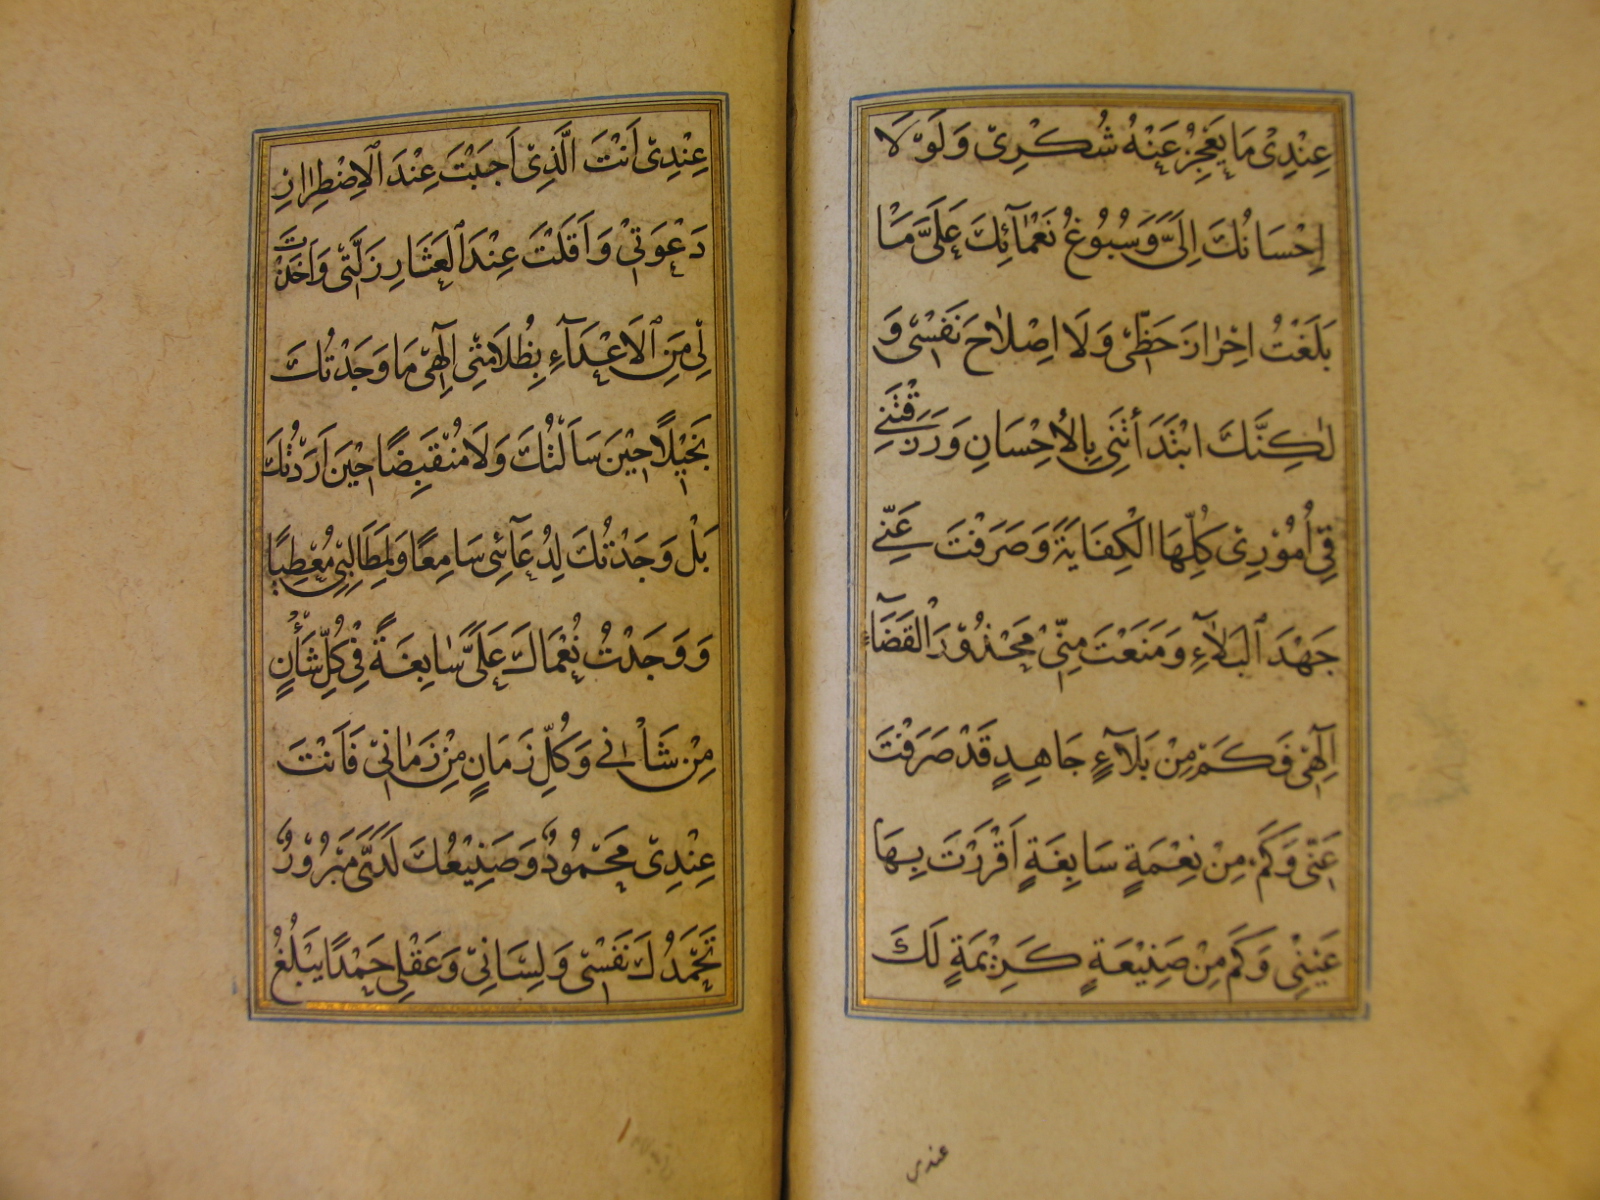 عِنْدِیْ مَا یَعْجِزُ عَنْهُ شُكْرِیْ وَلَوْ لَا
اِحْسَانُكَ اِلَیَّ وَسُبُوغُ نَعْمَآئِكَ عَلَیَّ مَا
بَلَغْتُ اِحْرَازَ حَظِّیْ وَلَا اِصْلَاحَ نَفْسِیْ وَ
لٰكِنَّكَ ابْتَدَأْتَنِیْ بِالْاِحْسَانِ وَرَزَقْتَنِیْ
فِیْ اُمُوْرِیْ كُلِّهَا الْكِفَایَةَ وَصَرَفْتَ عَنِّیْ
جَهْدَ الْبَلَآءِ وَمَنَعْتَ مِنِّیْ مَحْذُوْرَ الْقَضَآءِ
اِلٰهِیْ فَكَمْ مِنْ بَلَآءٍ جَاهِدٍ قَدْ صَرَفْتَ
عَنِّیْ وَكَمْ مِنْ نِعْمَةٍ سَابِغَةٍ اَقْرَرْتَ بِهَا
عَیْنِیْ وَكَمْ مِنْ صَنِیْعَةٍ كَرِیْمَةٍ لَكَ
عندی
عِنْدِیْ اَنْتَ الَّذِیْ اَجَبْتَ عِنْدَ الْاِضْطِرَارِ
دَعْوَتِیْ وَاَقَلْتَ عِنْدَ الْعَثَارِ زَلَّتِیْ وَاَخَذْتَ
لِیْ مِنَ الْاَعْدَآءِ بِظُلَامَتِیْ اِلٰهِیْ مَا وَجَدْتُكَ
بَخِیْلًا حِیْنَ سَاَلْتُكَ وَلَا مُنْقَبِضًا حِیْنَ اَرَدْتُكَ
بَلْ وَجَدْتُكَ لِدُعَآئِیْ سَامِعًا وَلِمَطَالِبِیْ مُعْطِیًا
وَوَجَدْتُ نُعْمَاكَ عَلَیَّ سَابِغَةً فِیْ كُلِّ شَأْنٍ
مِنْ شَاْنِیْ وَكُلِّ زَمَانٍ مِنْ زَمَانِیْ فَاَنْتَ
عِنْدِیْ مَحْمُوْدٌ وَصَنِیْعُكَ لَدَیَّ مَبْرُوْرٌ
تَحْمَدُكَ نَفْسِیْ وَلِسَانِیْ وَعَقْلِیْ حَمْدًا یَبْلُغُ